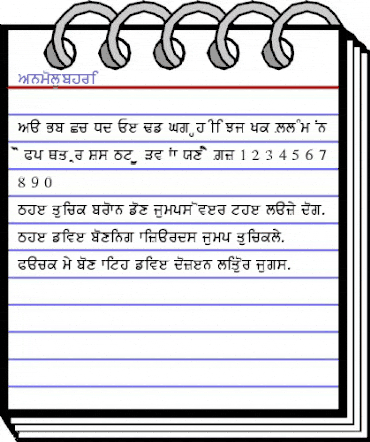 ਅਨਮੋਲੁਬਹਰਿ
ਅੳ ਭਬ ਛਚ ਧਦ ਓੲ ਢਡ ਘਗ ੍ਹਹ ੀਿ ਝਜ ਖਕ ਲ਼ਲ ੰਮ ਂਨ
ੌੋ ਫਪ ਥਤ ੍ਰਰ ਸ਼ਸ ਠਟ ੂੁ ੜਵ ਾਂਾ ਯਣ ੈੇ ਗ਼ਜ਼ 1 2 3 4 5 6 7
8 9 0
ਠਹੲ ਤੁਚਿਕ ਬਰੋਾਨ ਡੋਣ ਜੁਮਪਸ ੋਵੲਰ ਟਹੲ ਲੳਜ਼ੇ ਦੋਗ.
ਠਹੲ ਡਵਿੲ ਬੋਣਨਿਗ ਾਜ਼ਿੳਰਦਸ ਜੁਮਪ ਤੁਚਿਕਲੇ.
ਫੳਚਕ ਮੇ ਬੋਣ ਾਟਿਹ ਡਵਿੲ ਦੋਜ਼ੲਨ ਲਤਿੁੋਰ ਜੁਗਸ.